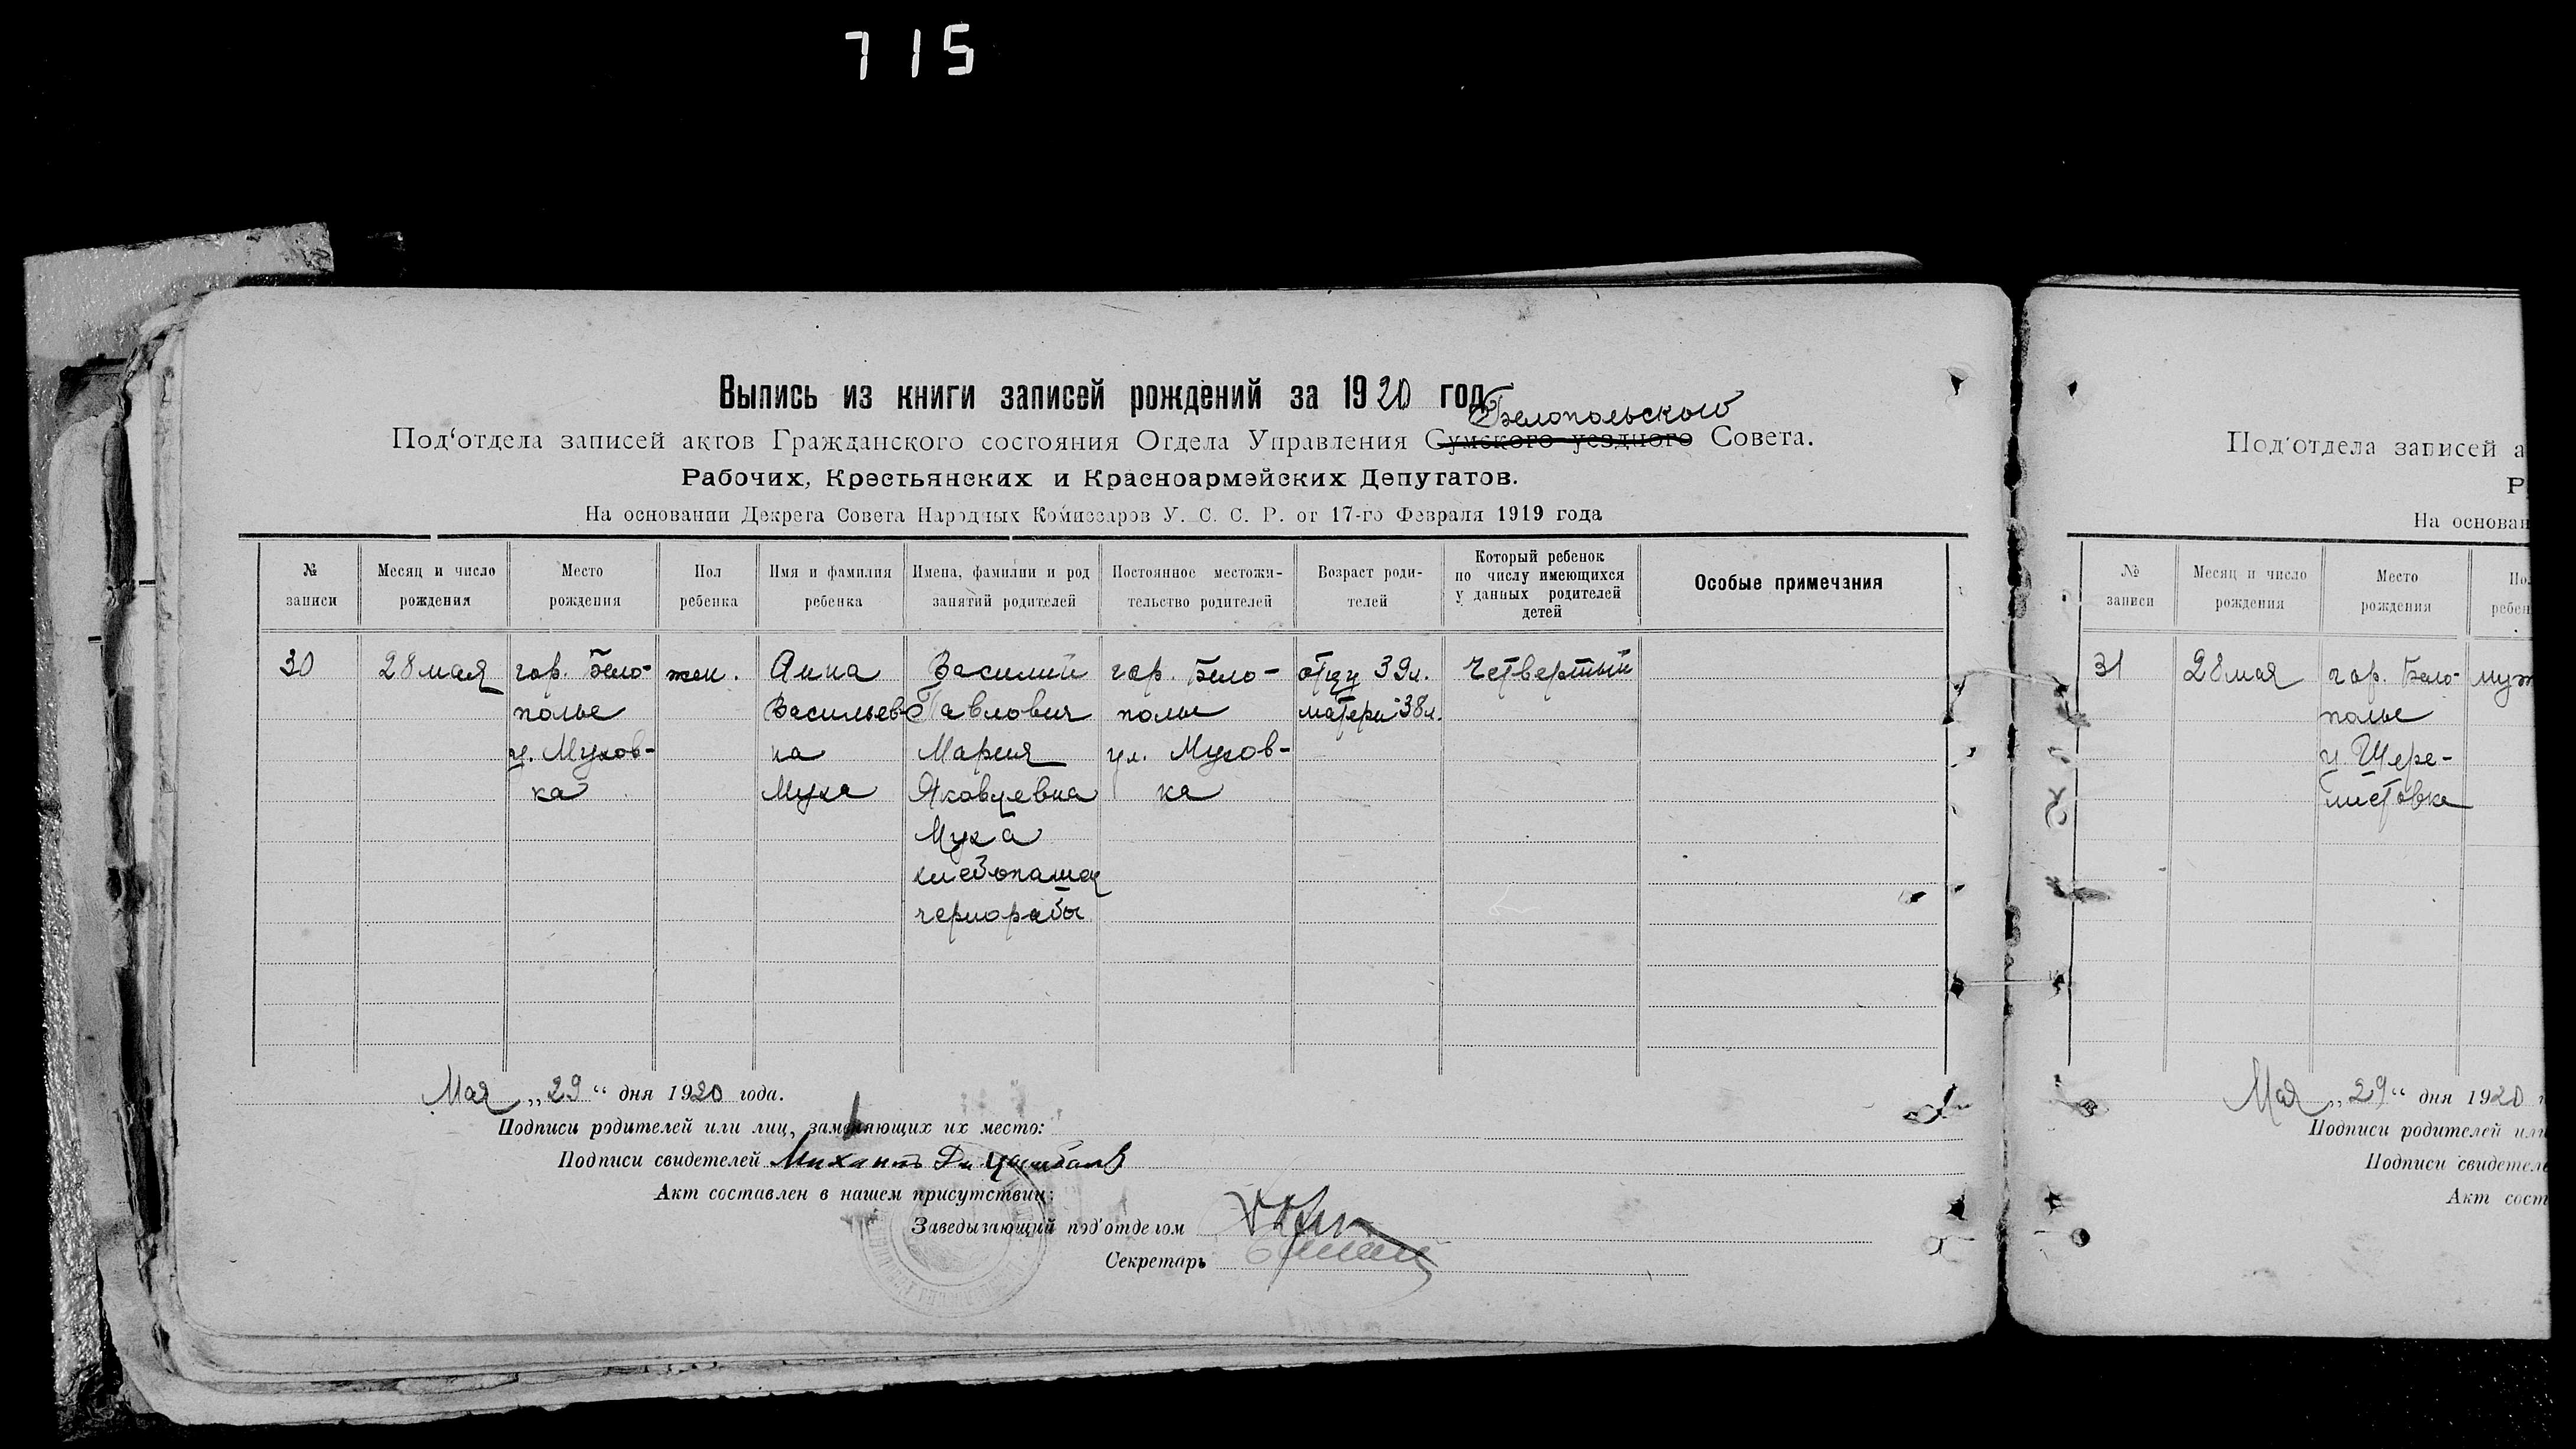 715
Выпись из книги записей рождений за 1920 год
Белопольского
Под‘отдела записей актов Гражданского состояния Отдела Управления Сумского уездного Совета.
Рабочих, Крестьянских и Красноармейских Депутатов.
На основании Декрета Совета Народных Комиссаров У. С. С. Р. от 17-го Февраля 1919 года
№ записи
Месяц и число рождения
Место рождения
Пол ребенка
Имя и фамилия ребенка
Имена, фамилии и род занятий родителей
Постоянное местожи-тельство родителей
Возраст роди-телей
Который ребенок по числу имеющихся у данных родителей детей
Особые примечания
30
28 мая
гор. Бело-
полье
у. Мухов-
ка
жен.
Анна
Васильев-
на
Муха
Василий
Павлович
Мария
Яковлевна
Муха
хлебопашец
чернорабы
гор. Бело-
полье
ул. Мухов-
ка
отцу 39 л.
матери 38 л.
Четвертый
Мая „29“ дня 1920 года.
Подписи родителей или лиц, заменяющих их место:
Подписи свидетелей Михаил
Акт составлен в нашем присутствии:
Заведывающий под‘отделом
Секретарь
Под‘отдела записей а
Р
На основан
№ записи
Месяц и число рождения
Место рождения
По
ребен
31
28 мая
гор. Бело-
полье
у. Шере-
метовка
муж
Мая „29“ дня 1920
Подписи родителей или
Подписи свидетел
Акт сост